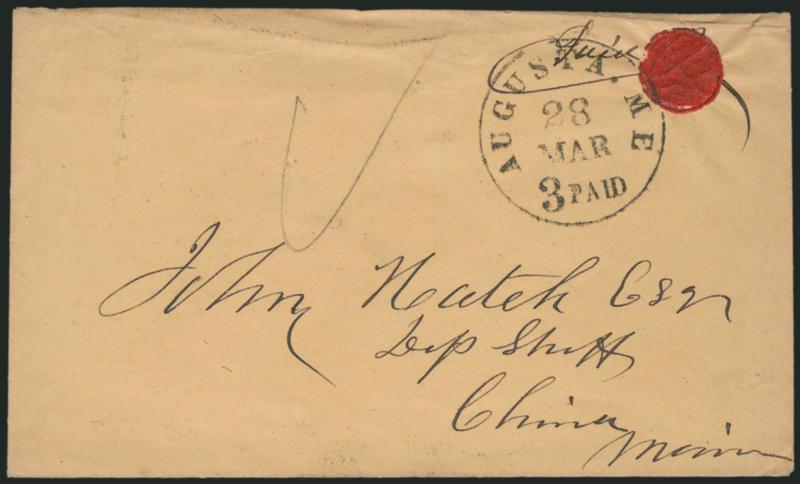 Paid
AUGUSTA. ME
28
MAR
3 PAID
John Hatch Esqr
Dep Shff
China
Maine